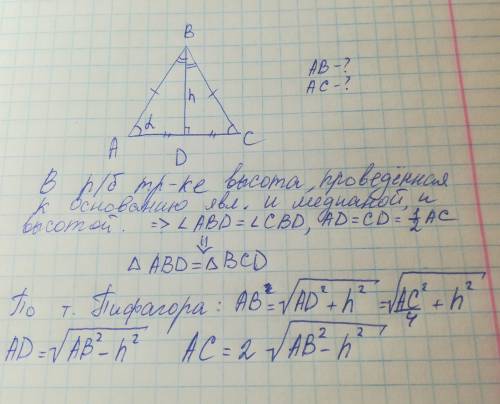 B
h
A
α
D
C
AB-?
AC-?
В р/б тр-ке высота, проведённая
к основанию явл. и медианой, и
высотой. => ∠ABD=∠CBD, AD=CD=½AC
⇓
△ABD=△BCD
По т. Пифагора: AB²=√(AD²+h²)=√(AC²/4+h²)
AD=√(AB²-h²) AC=2√(AB²-h²)